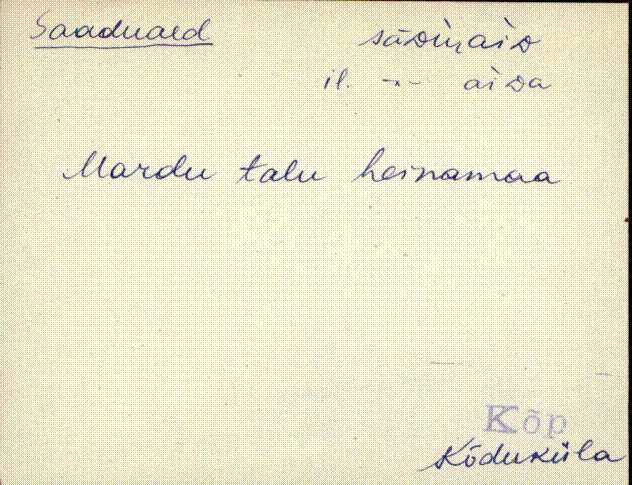 Saaduaed sāDuaiD
il. -"- aiDa
Mardu talu heinamaa
Kõp
Kõduküla